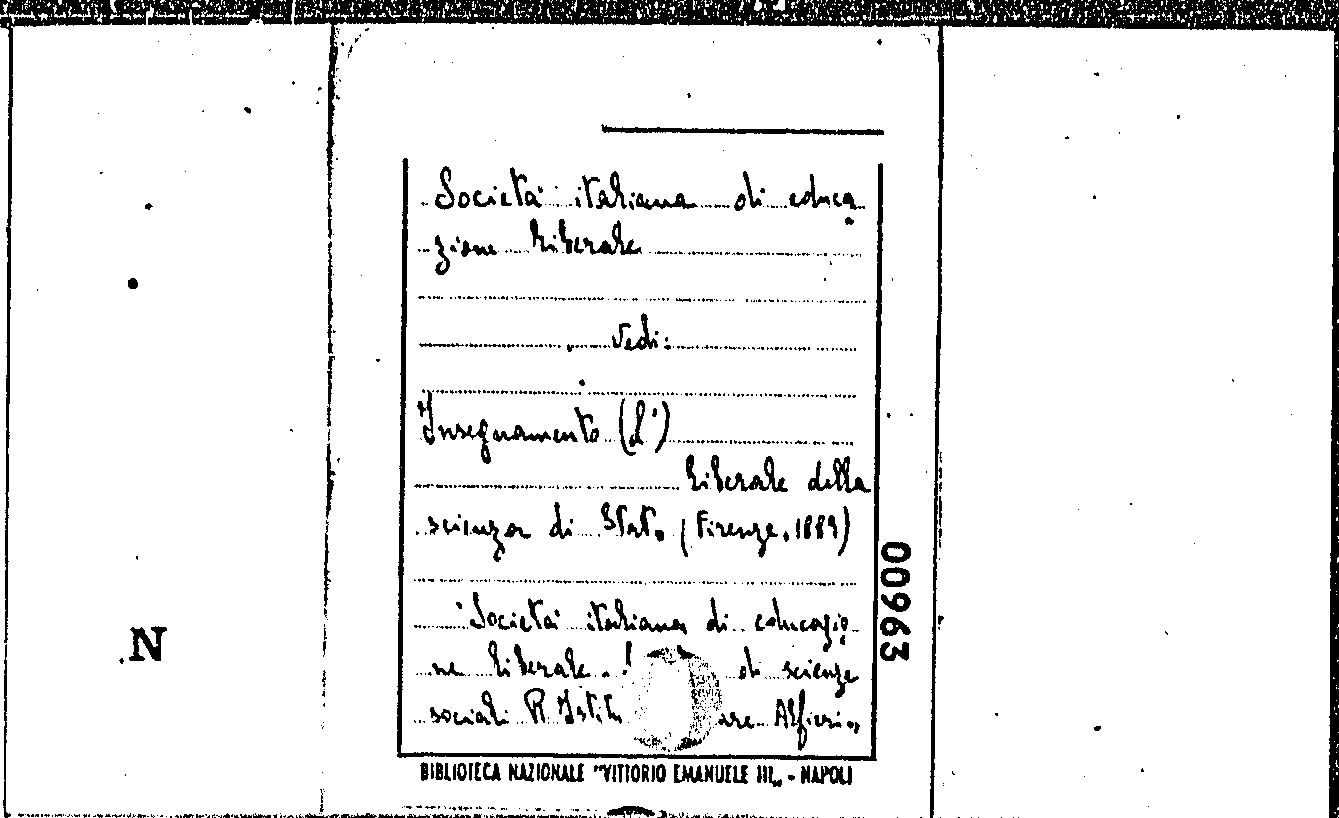 Società italiana di educa
zione liberale
Vedi:
Insegnamento (L')
liberale della
scienza di Stato (Firenze, 1889)
Società italiana di educazio
ne liberale. di scienze
sociali R Istitu are Alfieri"
00963
N
BIBLIOTECA NAZIONALE "VITTORIO EMANUELE III„ - NAPOLI